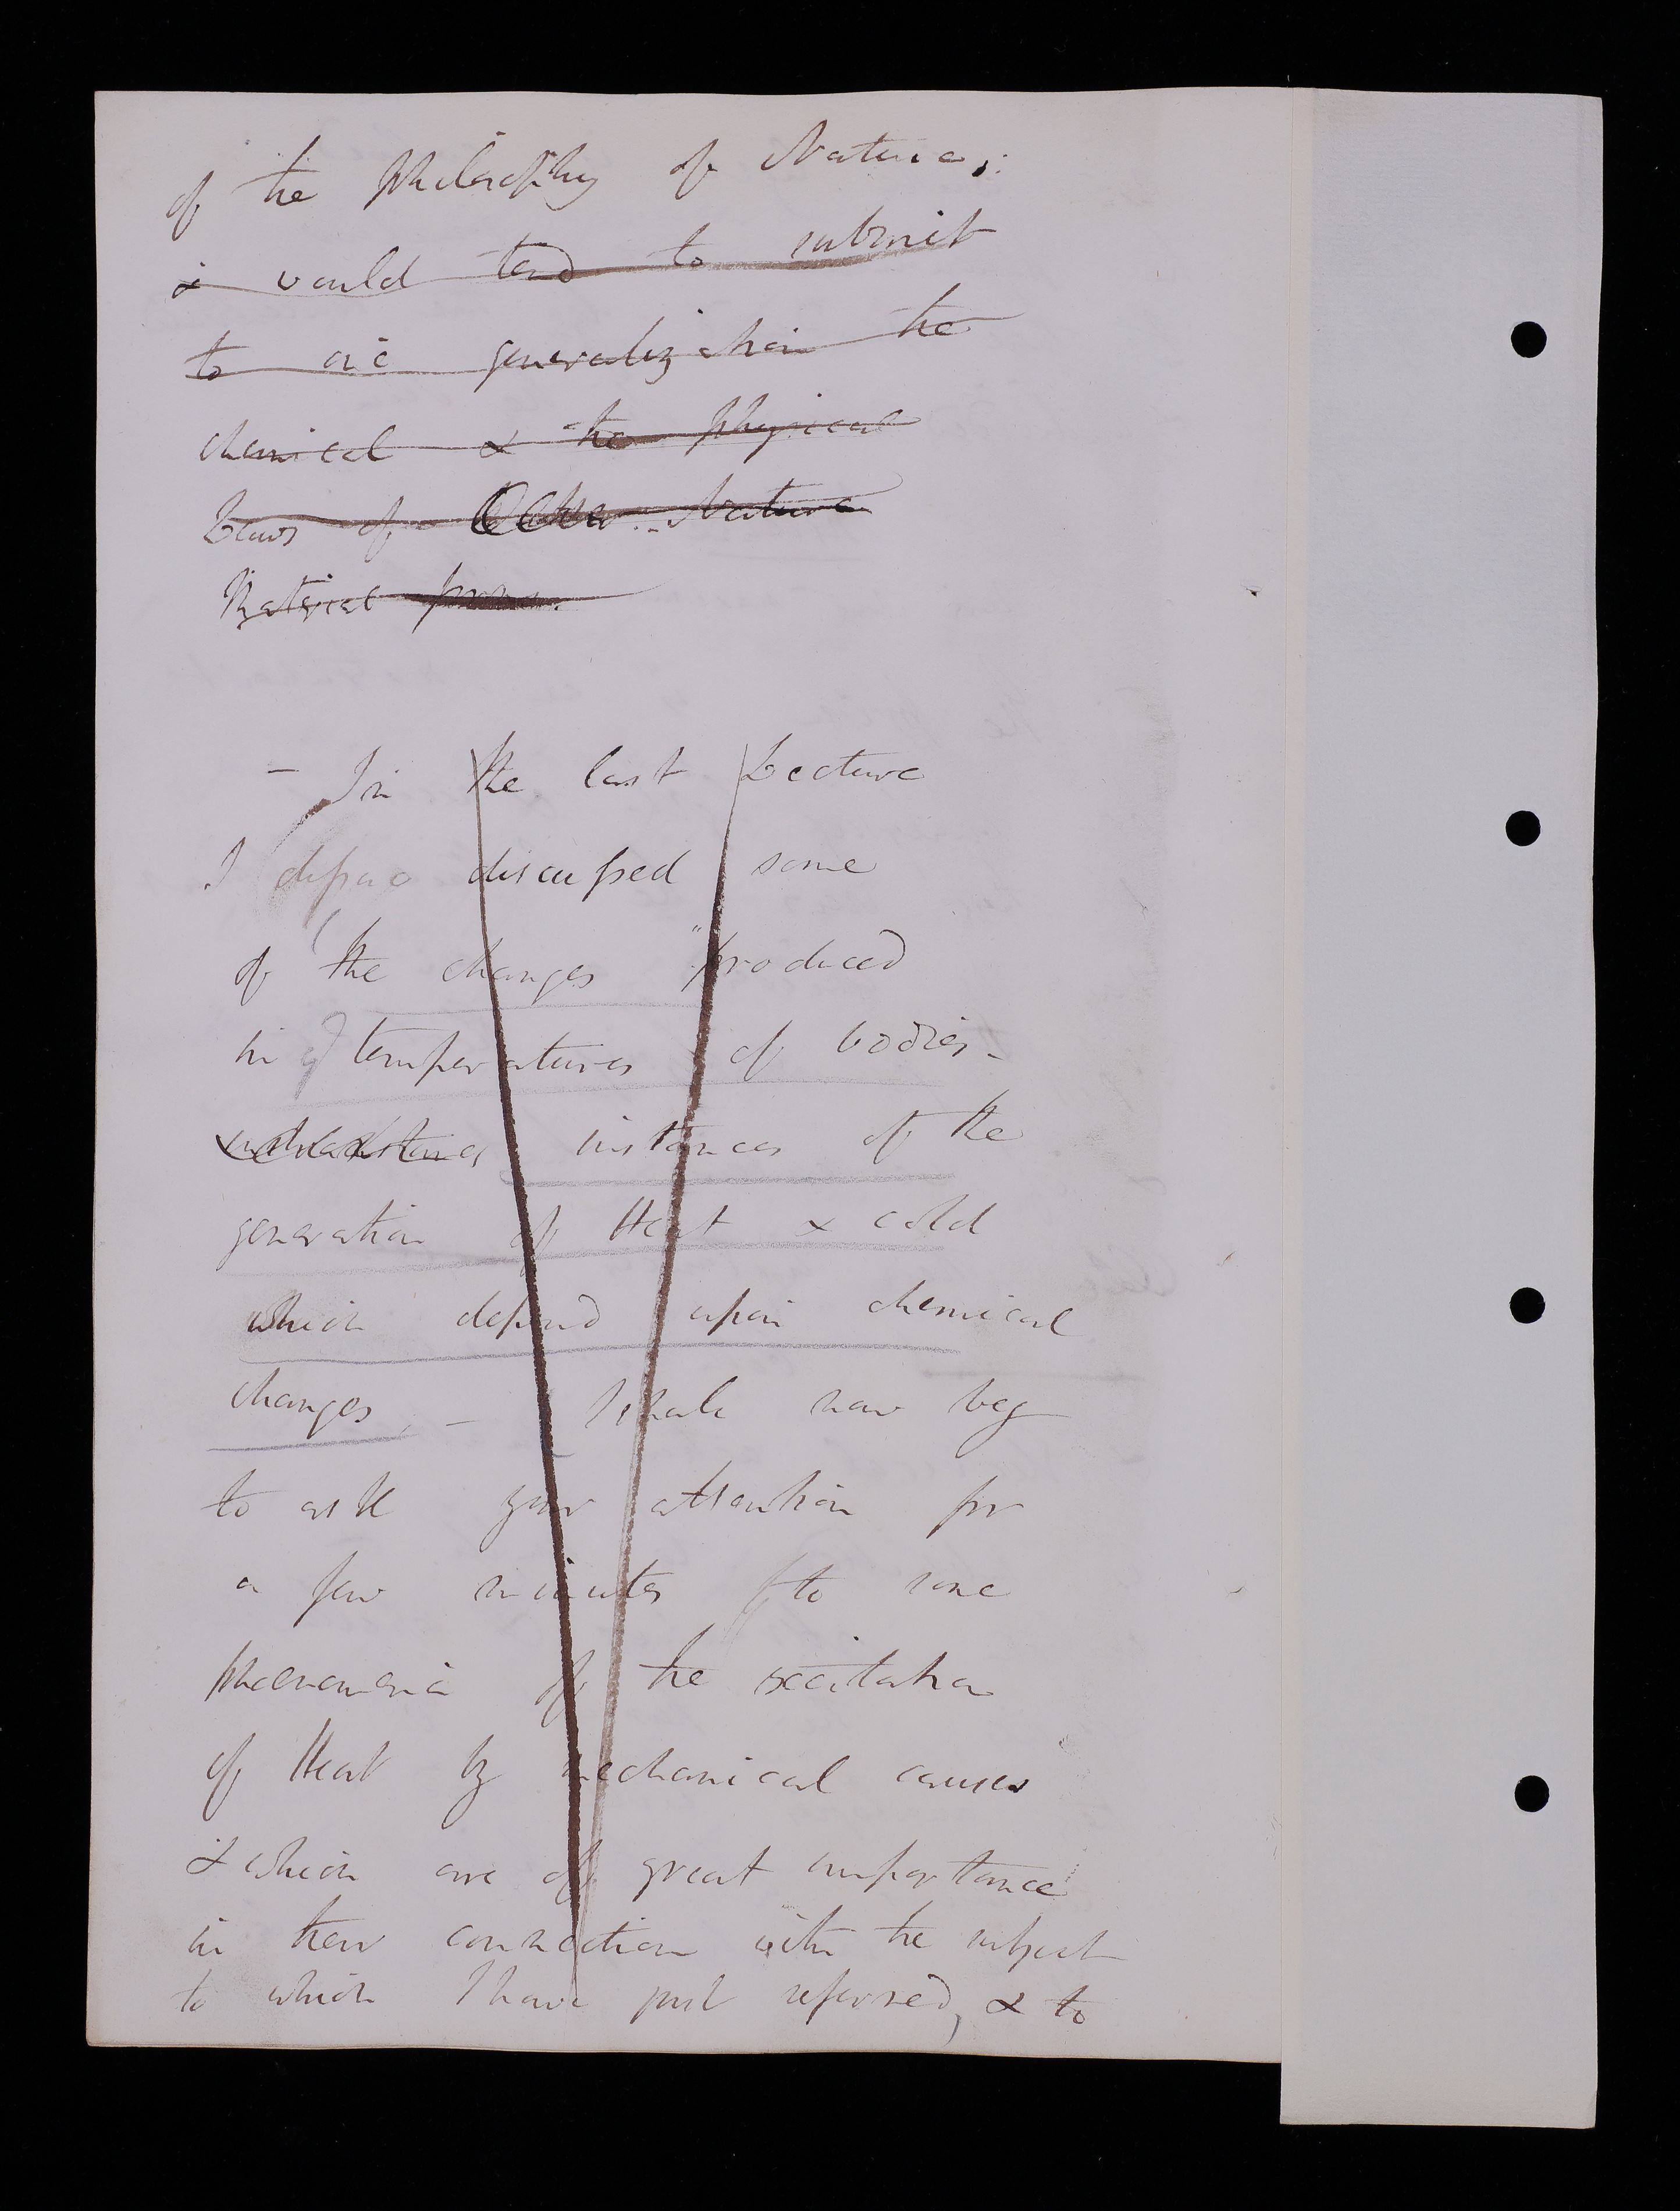 of the Philosophy of Nature;
& would tend to submit
to one generalization the
chemical & the physical
Laws of Nature
Material
– In the last Lecture
I discussed some
of the changes produced
in temperatures of bodies -
instances of the
generation of Heat & cold
which depend upon chemical
changes, – I shall now beg
to ask your attention for
a few minutes to some
phaenomena of the excitation
of Heat by mechanical causes
& which are of great importance
in their connection with the subject
to which I have just referred, & to